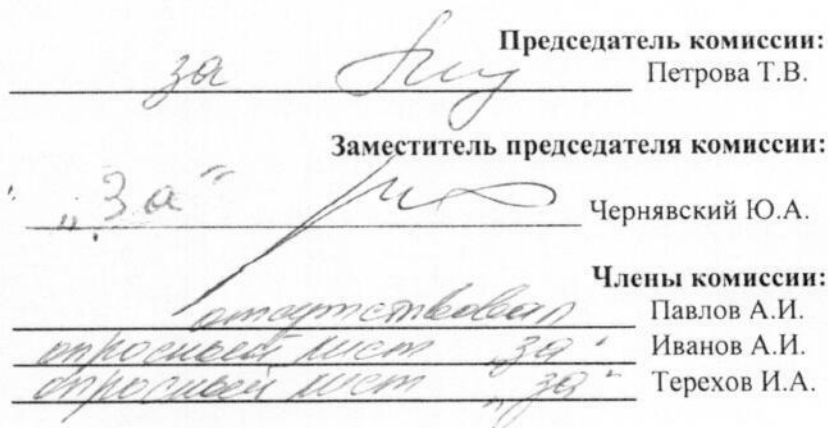 Председатель комиссии:
за Петрова Т.В.
Заместитель председателя комиссии:
„За“ Чернявский Ю.А.
Члены комиссии:
отсутствовал Павлов А.И.
опросный лист „за“ Иванов А.И.
опросный лист „за“ Терехов И.А.